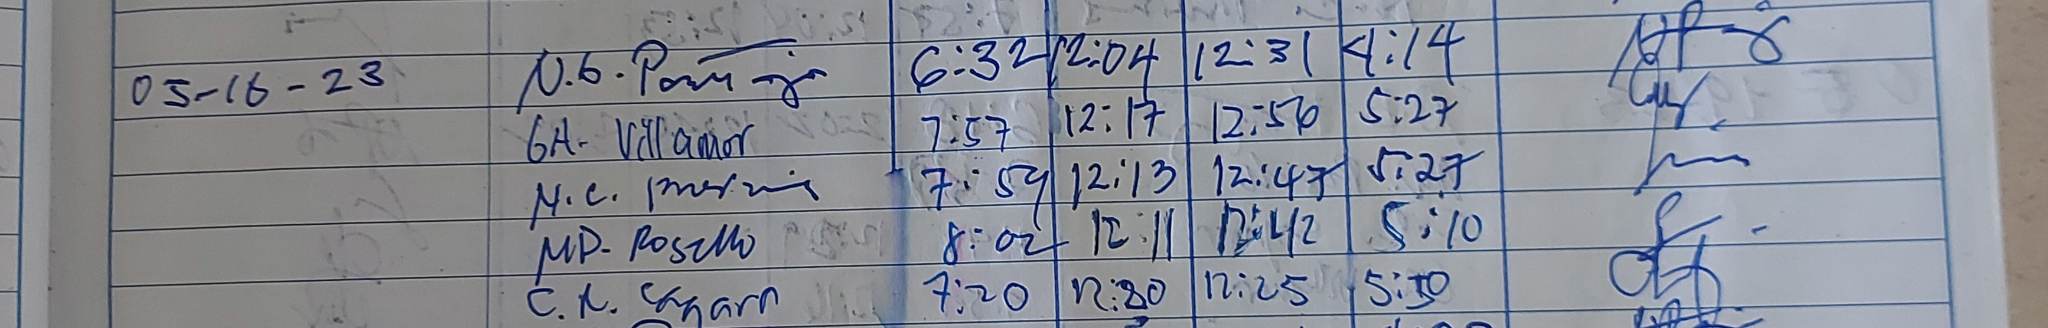 05-16-23 N.G. 6:32 12:04 12:31 4:14
GA. Villamor 7:57 12:17 12:56 5:27
M.C. 7:59 12:13 12:47 5:27
MD. Rosello 8:02 12:11 12:42 5:10
C.N. 7:20 12:20 12:25 5:10